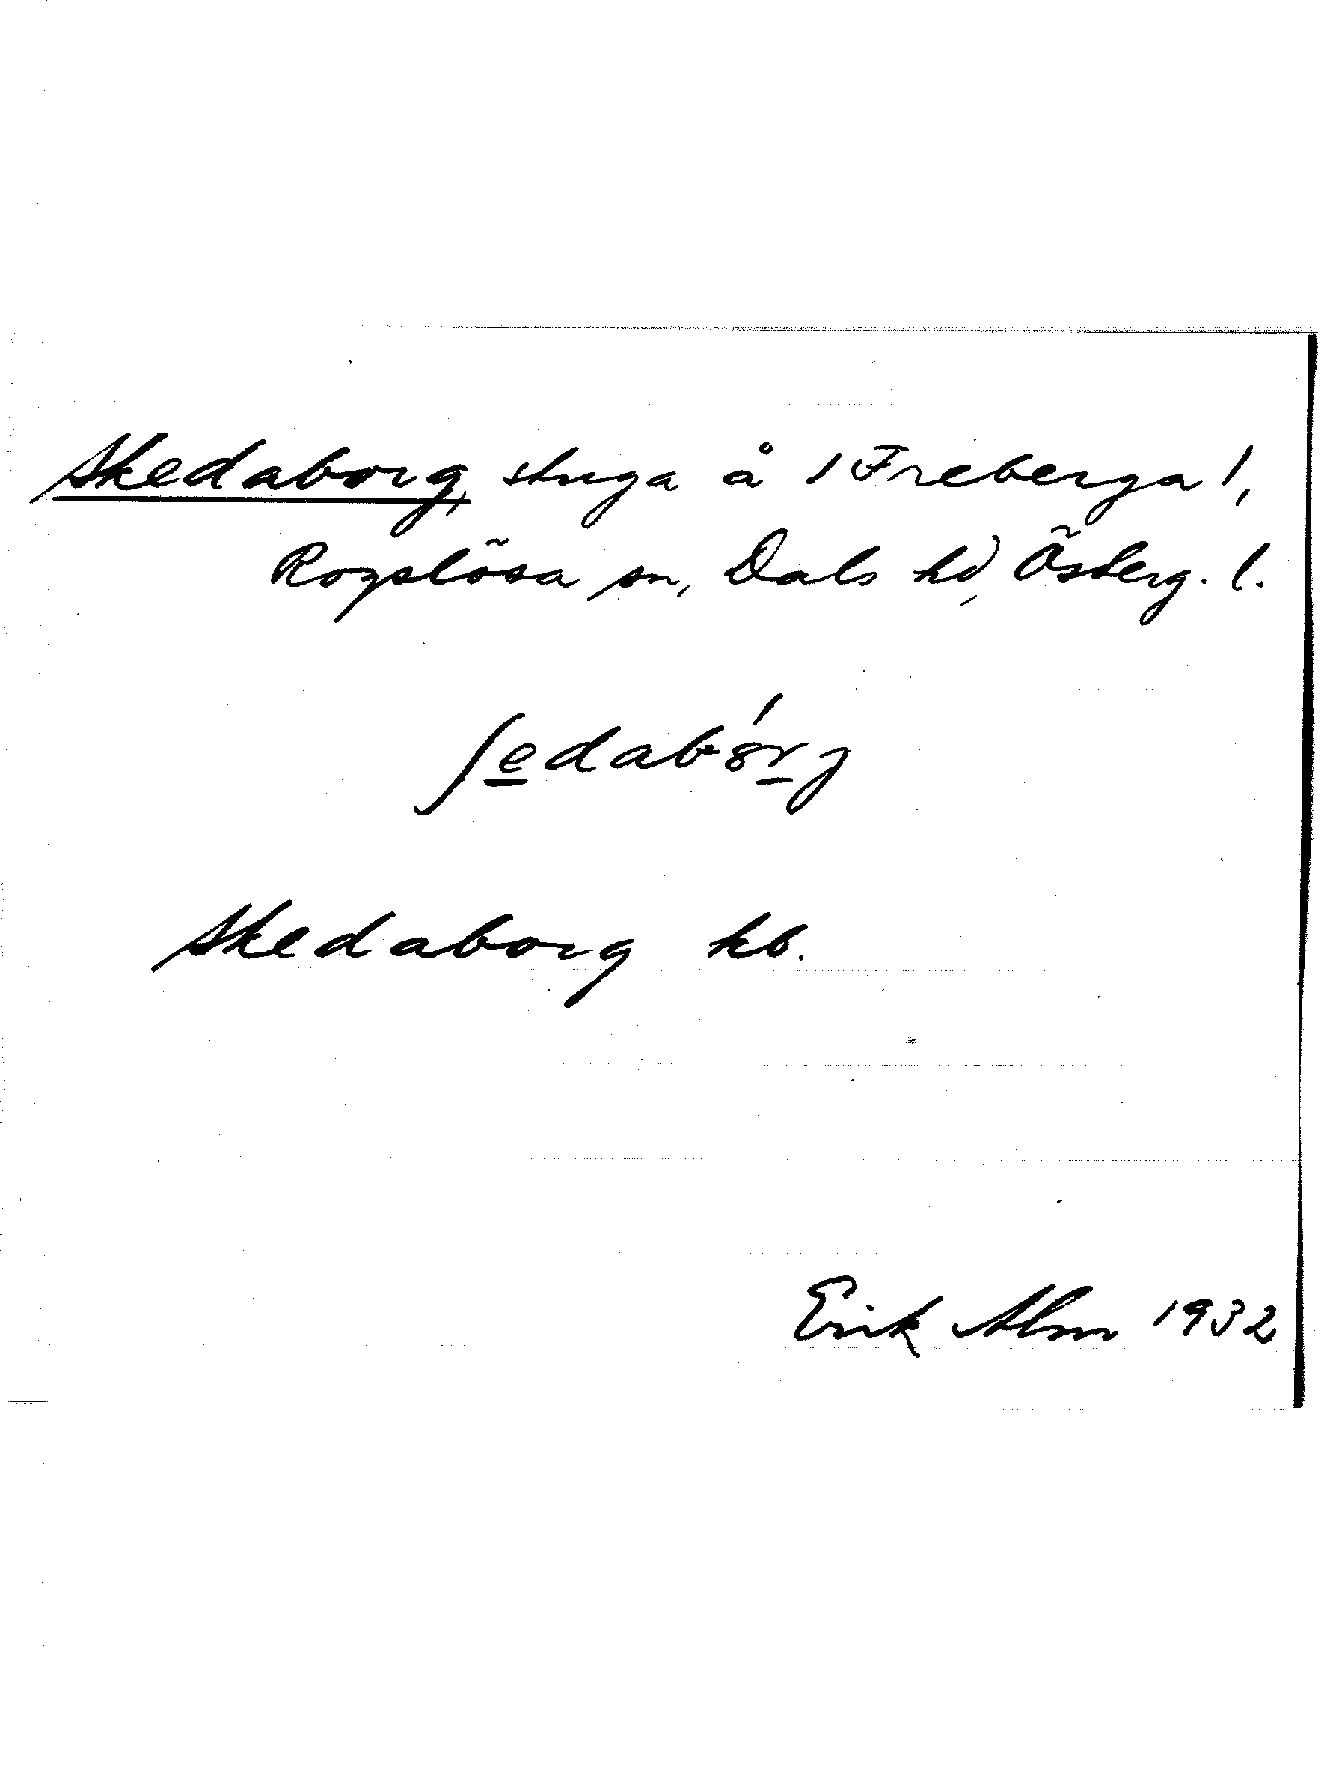 Skedaborg, stuga å /Freberga/,
Rogslösa sn, Dals hd, Österg. l.
ʃedabórj
Skedaborg kb.
Erik Alm 1932